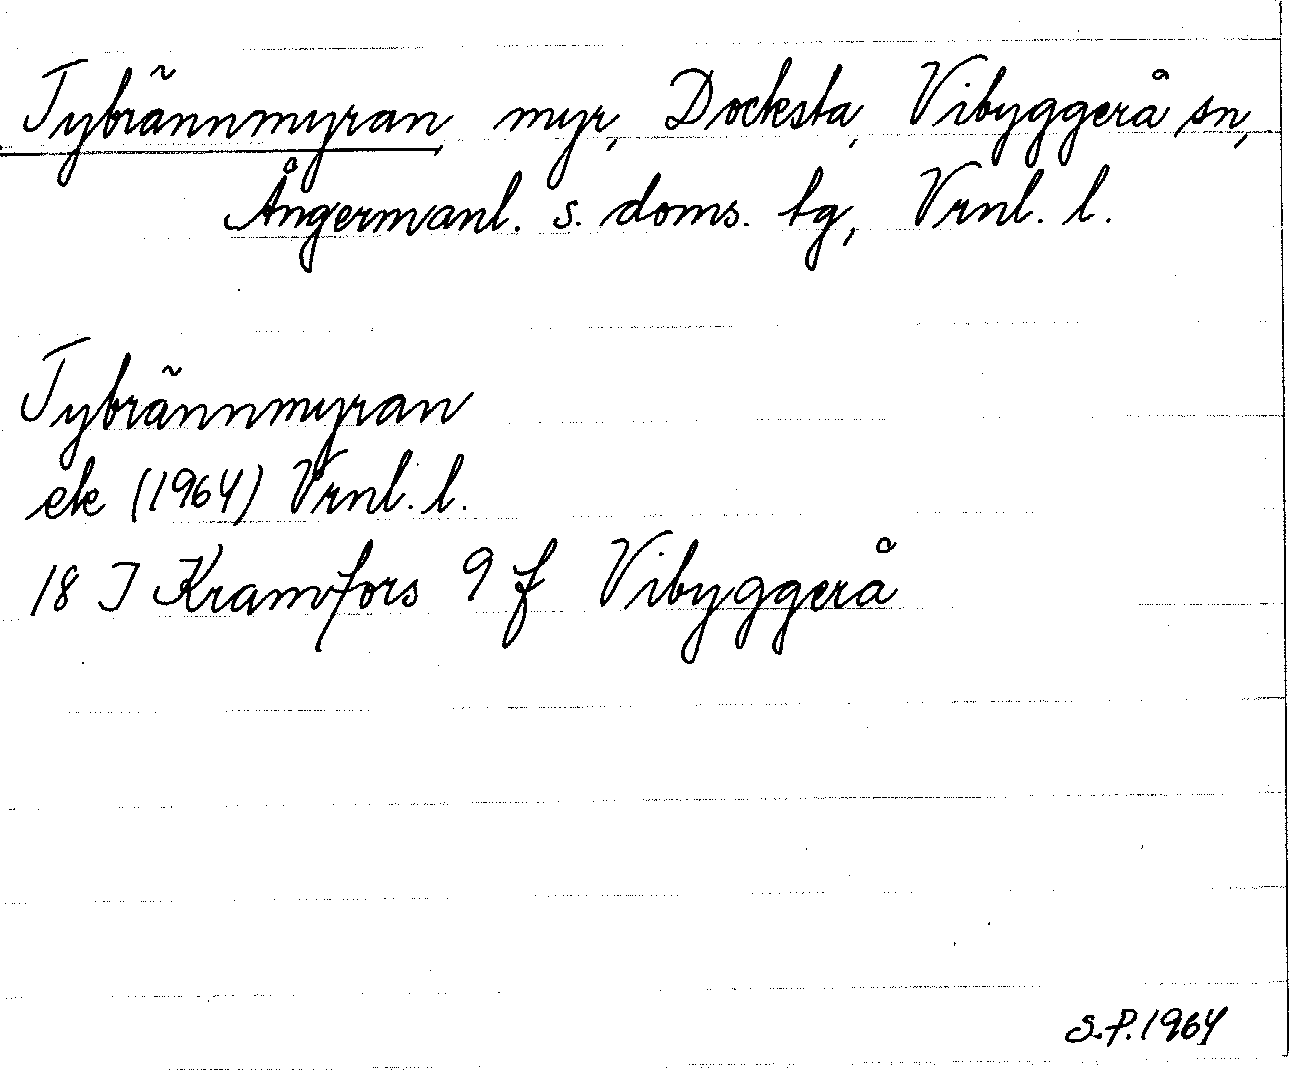 Tybrännmyran, myr, Docksta, Vibyggerå sn,
Ångermanl. s. doms. tg, Vrnl. l.
Tybrännmyran
ek (1964) Vrnl. l.
18 J Kramfors 9 f Vibyggerå
S.P. 1964